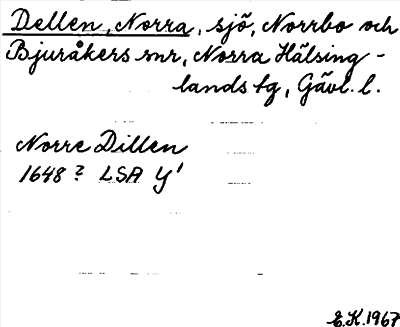 Dellen, Norra, sjö, Norrbo och
Bjuråkers snr, Norra Hälsing-
lands tg, Gävl. l.
Norre Dillen
1648? LSA Y¹
E.K. 1967